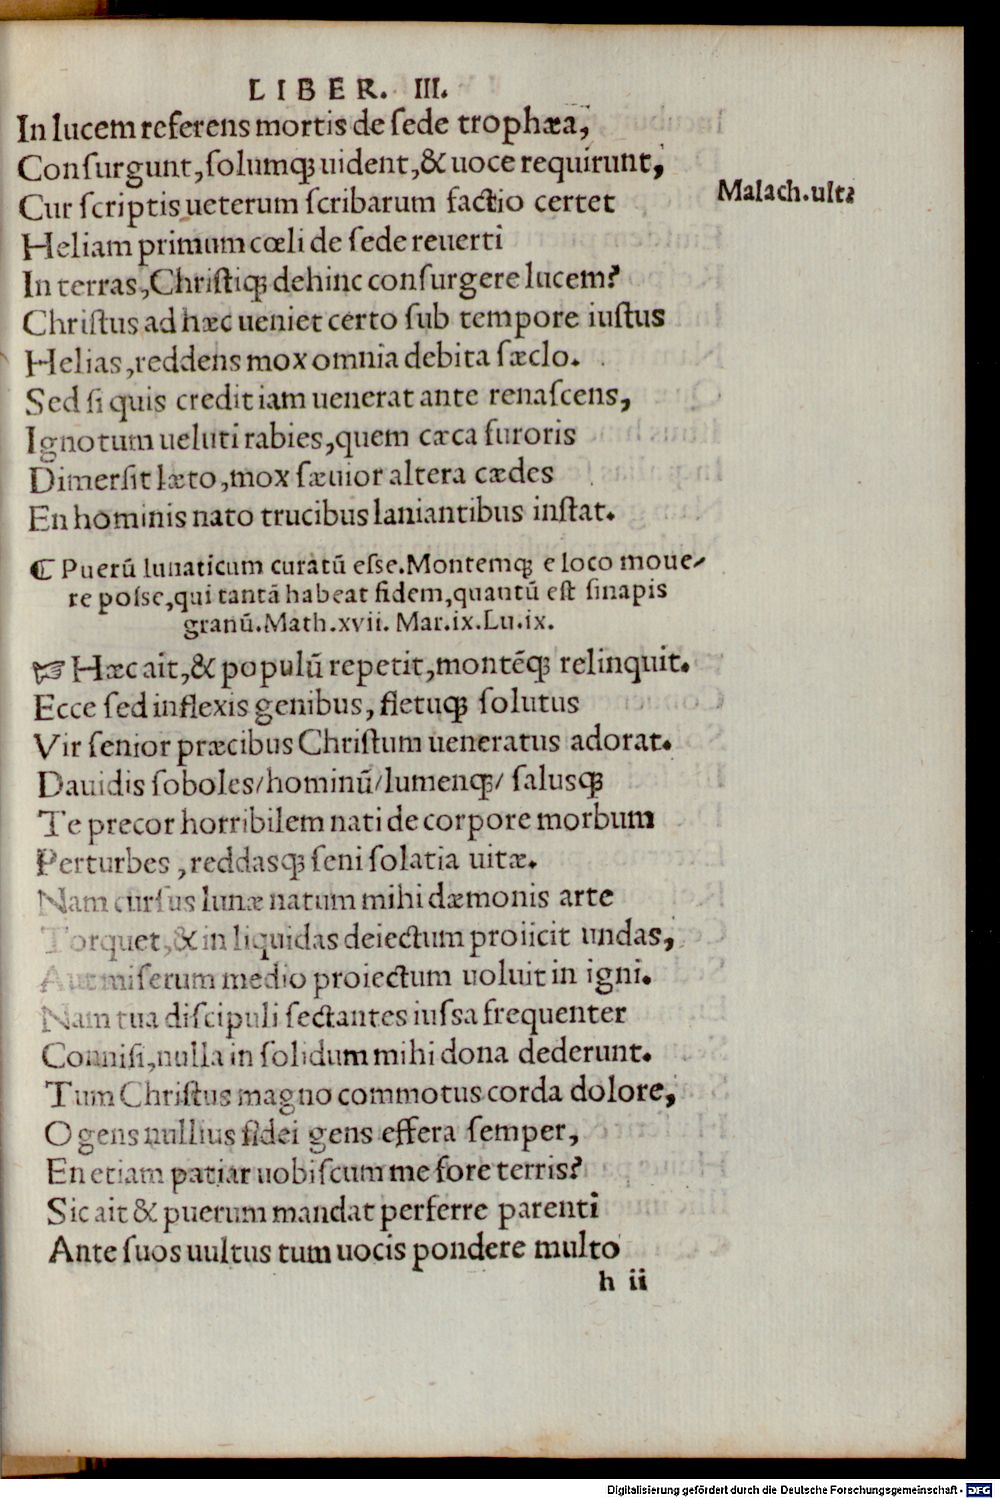 LIBER. III.
In lucem referens mortis de sede trophæa,
Consurgunt, solumq; uident, & uoce requirunt,
Cur scriptis ueterum scribarum factio certet
Malach.ult.
Heliam primum cœli de sede reuerti
In terras, Christiq; dehinc consurgere lucem?
Christus ad hæc ueniet certo sub tempore iustus
Helias, reddens mox omnia debita sæclo.
Sed si quis credit iam uenerat ante renascens,
Ignotum ueluti rabies, quem cæca furoris
Dimersit læto, mox sæuior altera cædes
En hominis nato trucibus laniantibus instat.
¶ Puerū lunaticum curatū esse. Montemq; e loco moue-
re posse, qui tantā habeat fidem, quantū est sinapis
granū. Math.xvii. Mar.ix. Lu.ix.
☞ Hæc ait, & populū repetit, montēq; relinquit.
Ecce sed inflexis genibus, fletuq; solutus
Vir senior præcibus Christum ueneratus adorat.
Dauidis soboles/ hominū/ lumenq;/ salusq;
Te precor horribilem nati de corpore morbum
Perturbes, reddasq; seni solatia uitæ.
Nam cursus lunæ natum mihi dæmonis arte
Torquet, & in liquidas deiectum proiicit undas,
Aut miserum medio proiectum uoluit in igni.
Nam tua discipuli sectantes iussa frequenter
Connisi, nulla in solidum mihi dona dederunt.
Tum Christus magno commotus corda dolore,
O gens nullius fidei gens effera semper,
En etiam patiar uobiscum me fore terris?
Sic ait & puerum mandat perferre parenti
Ante suos uultus tum uocis pondere multo
h ii
Digitalisierung gefördert durch die Deutsche Forschungsgemeinschaft - DFG